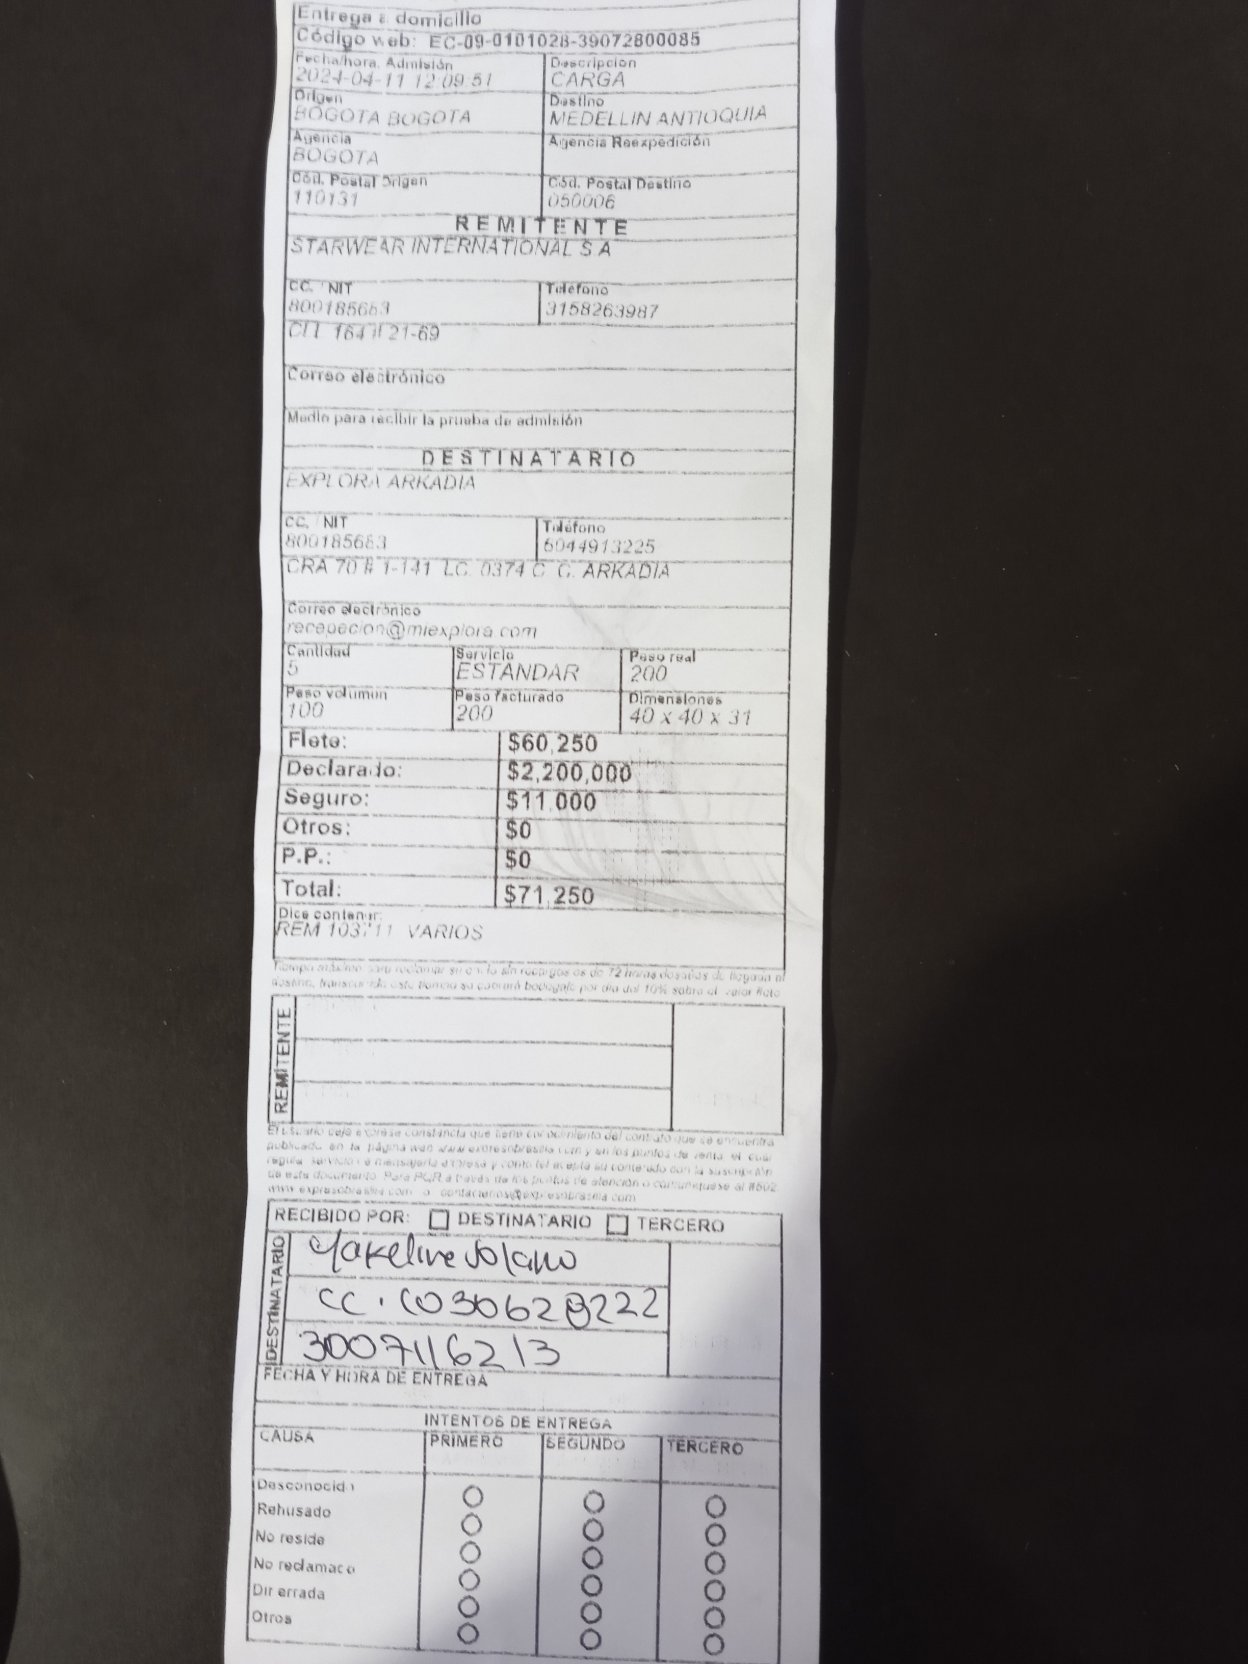 Entrega a domicilio
Código web: EC-09-0101028-39072800085
Fecha/hora. Admisión Descripción
2024-04-11 12:09:51 CARGA
Origen Destino
BOGOTA BOGOTA MEDELLIN ANTIOQUIA
Agencia Agencia Reexpedición
BOGOTA
Cód. Postal Origen Cód. Postal Destino
110131 050006
REMITENTE
STARWEAR INTERNATIONAL S A
CC. NIT Teléfono
800185683 3158263987
CLL 164 # 21-69
Correo electrónico
Medio para recibir la prueba de admisión
DESTINATARIO
EXPLORA ARKADIA
CC. NIT Teléfono
800185683 6044913225
CRA 70 # 1-141 LC. 0374 C. C. ARKADIA
Correo electrónico
recepecion@miexplora.com
Cantidad Servicio Peso real
5 ESTANDAR 200
Peso volumen Peso facturado Dimensiones
100 200 40 x 40 x 31
Flete: $60,250
Declarado: $2,200,000
Seguro: $11,000
Otros: $0
P.P.: $0
Total: $71,250
Dice contener:
REM 103711 VARIOS
72 horas de llegada al
destino, este tiempo se cobrará bodegaje por día del 10% sobre el valor flete
REMITENTE
El usuario deja expresa constancia que tiene conocimiento del contrato que se encuentra
publicado en la página web www.expresobrasilia.com y en los puntos de venta, el cual
regula servicio de mensajería expresa y como tal acepta su contenido con la suscripción
de este documento. Para PQR a través de los puntos de atención o comuníquese al #502
www.expresobrasilia.com o contactenos@expresobrasilia.com
RECIBIDO POR: DESTINATARIO TERCERO
DESTINATARIO
Yakeline Solano
CC. 1030628222
3007116213
FECHA Y HORA DE ENTREGA
INTENTOS DE ENTREGA
CAUSA PRIMERO SEGUNDO TERCERO
Desconocido
Rehusado
No reside
No reclamado
Dir errada
Otros